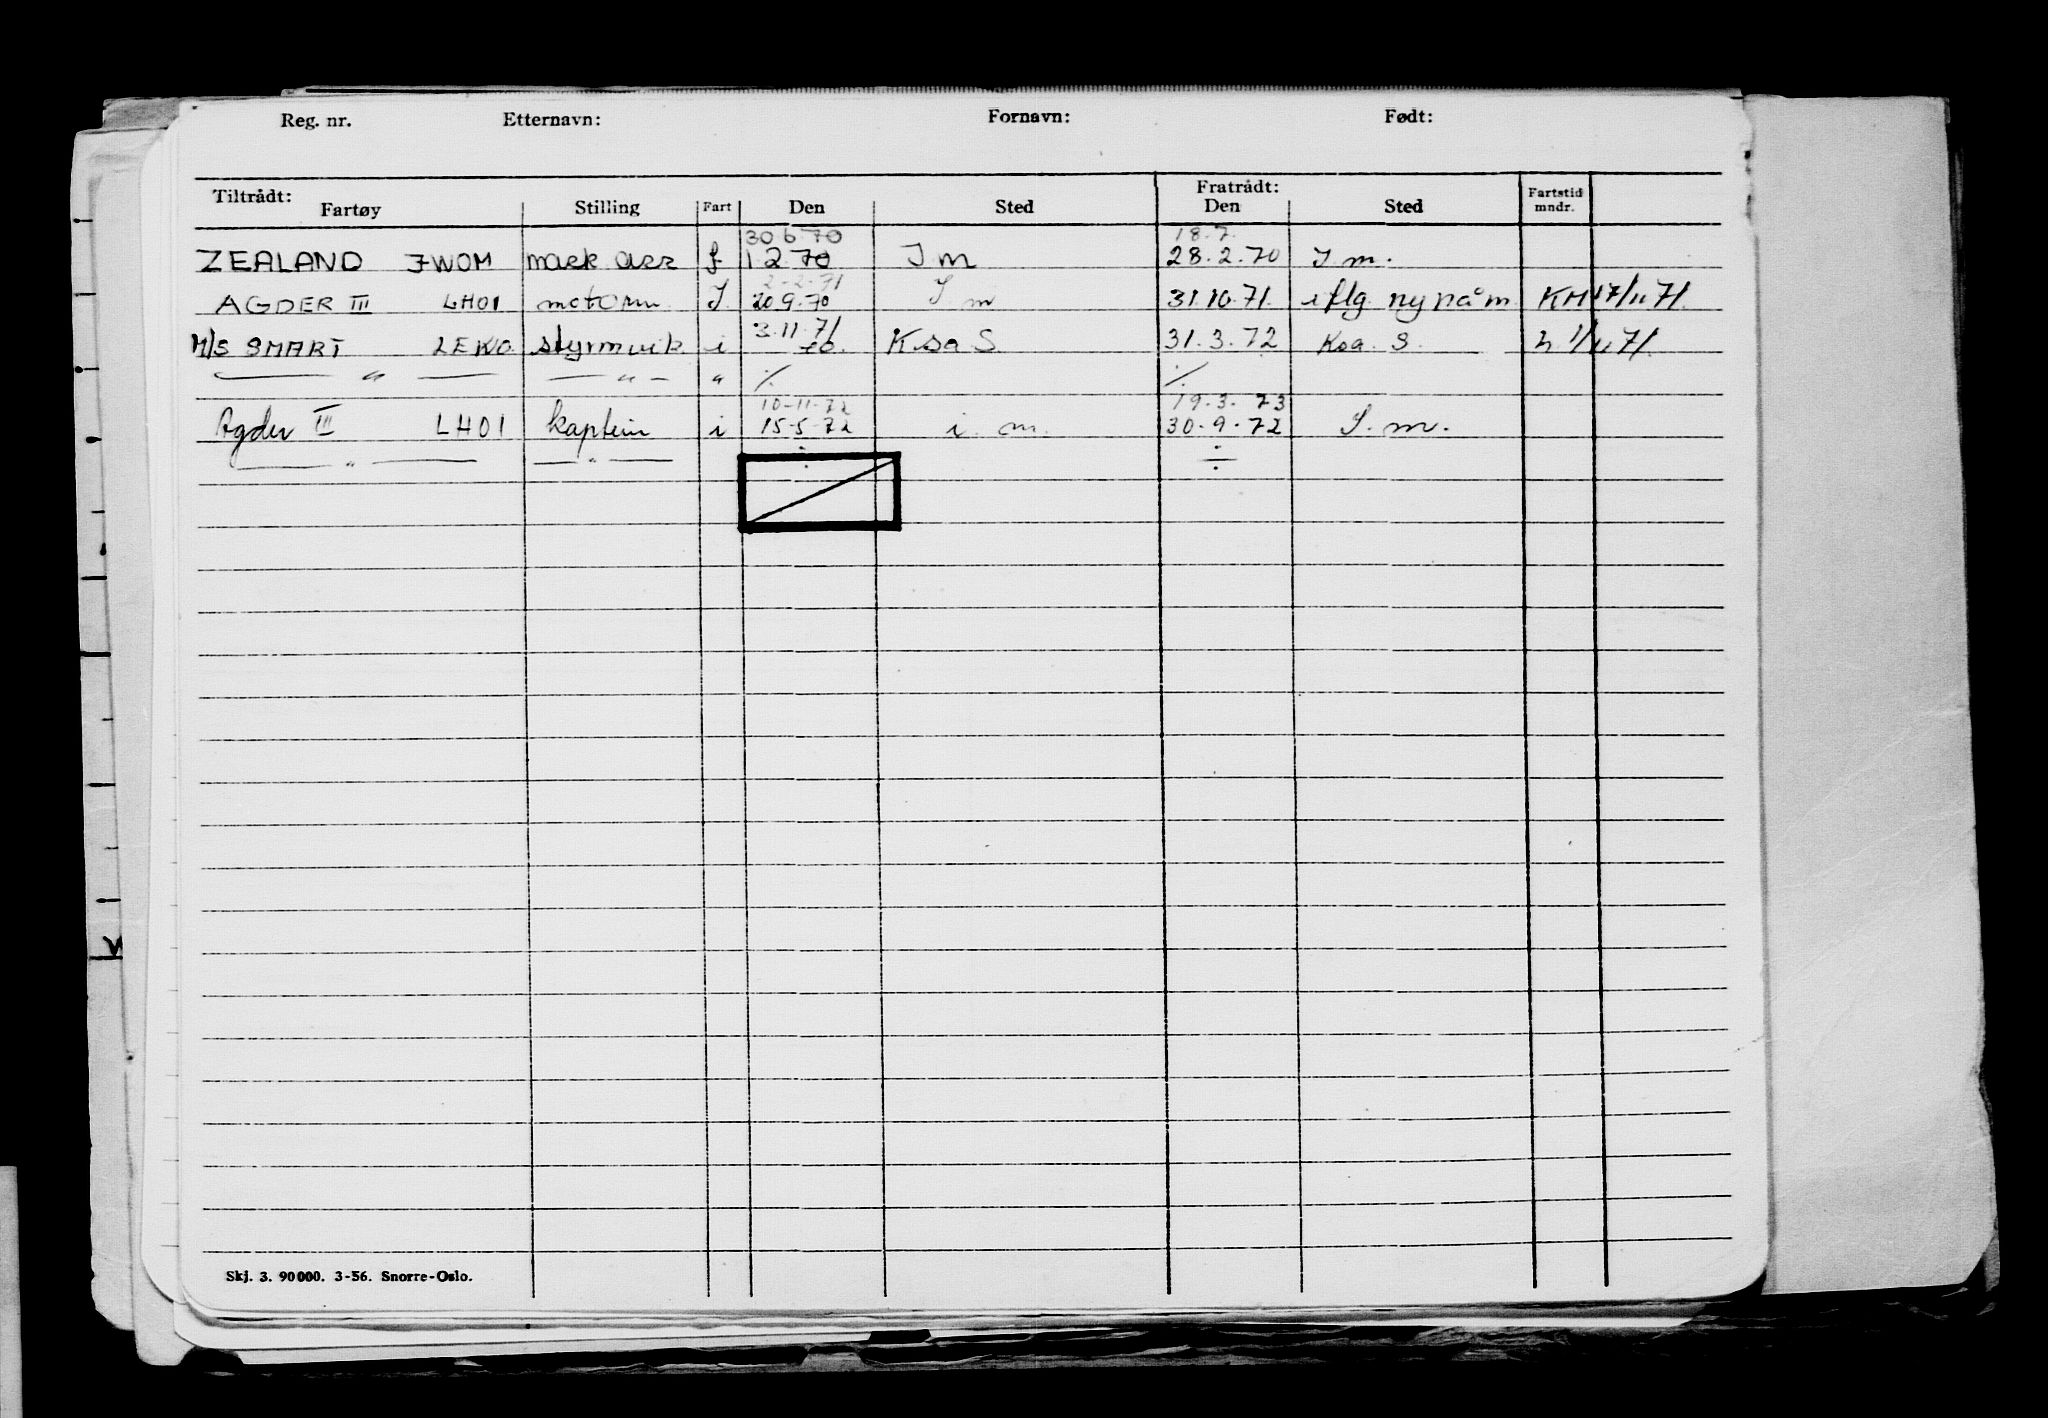 Reg. nr. Etternavn: Fornavn: Født:
Tiltrådt: Fratrådt:
Fartøy Stilling Fart Den Sted Den Sted Fartstid mndr.
30 6 70 18.7.
ZEALAND JWOM f 1 2 70 I m 28.2.70 I. m.
2-2-71
AGDER III LHOI motorm. I. 20.9.70 I m 31.10.71. iflg. ny påm. KM 17/11 71.
3.11.71
M/S SMART LEKO styrmvik i 70. Ksa S. 31.3.72 Ksa. S. 1/11 71.
— " — — " — " ./. ./.
10-11-72 19.3.73
Agder III LHOI kaptein i 15-5-72 i. m. 30.9.72 I. m.
— " — — " — ÷ ÷
Skj. 3. 90000. 3-56. Snorre-Oslo.